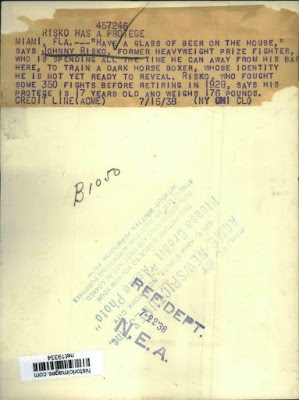 457246
RISKO HAS A PROTEGE
MIAMI, FLA.---"HAVE A GLASS OF BEER ON THE HOUSE,"
SAYS JOHNNY RISKO, FORMER HEAVYWEIGHT PRIZE FIGHTER,
WHO IS SPENDING ALL THE TIME HE CAN AWAY FROM HIS BAR
HERE, TO TRAIN A DARK HORSE BOXER, WHOSE IDENTITY
HE IS NOT YET READY TO REVEAL. RISKO, WHO FOUGHT
SOME 350 FIGHTS BEFORE RETIRING IN 1928, SAYS HIS
PROTEGE IS 17 YEARS OLD AND WEIGHS 176 POUNDS.
CREDIT LINE (ACME) 7/15/38 (NY UMI CLO)
B1050
ACME NEWSPICTURES
Please Credit "ACME Photo"
REF. DEPT.
7-22'38
N.E.A.
historicimages.com
net19334